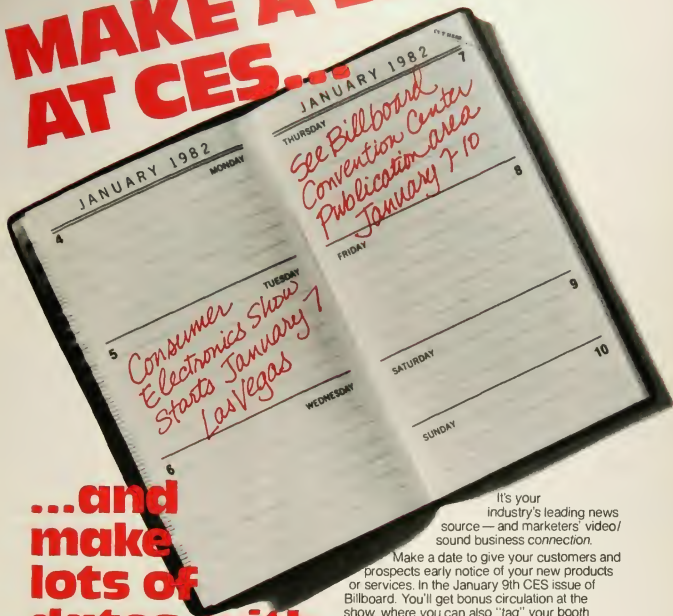 MAKE A
AT CES...
JANUARY 1982
MONDAY
4
TUESDAY
5
Consumer
Electronics Show
Starts January 7
Las Vegas
WEDNESDAY
6
JANUARY 1982
THURSDAY
7
See Billboard
Convention Center
Publication area
January 7-10
FRIDAY
8
SATURDAY
9
SUNDAY
10
...and
make
lots of
It's your
industry's leading news
source — and marketers' video/
sound business connection.
Make a date to give your customers and
prospects early notice of your new products
or services. In the January 9th CES issue of
Billboard. You'll get bonus circulation at the
show, where you can also "tag" your booth